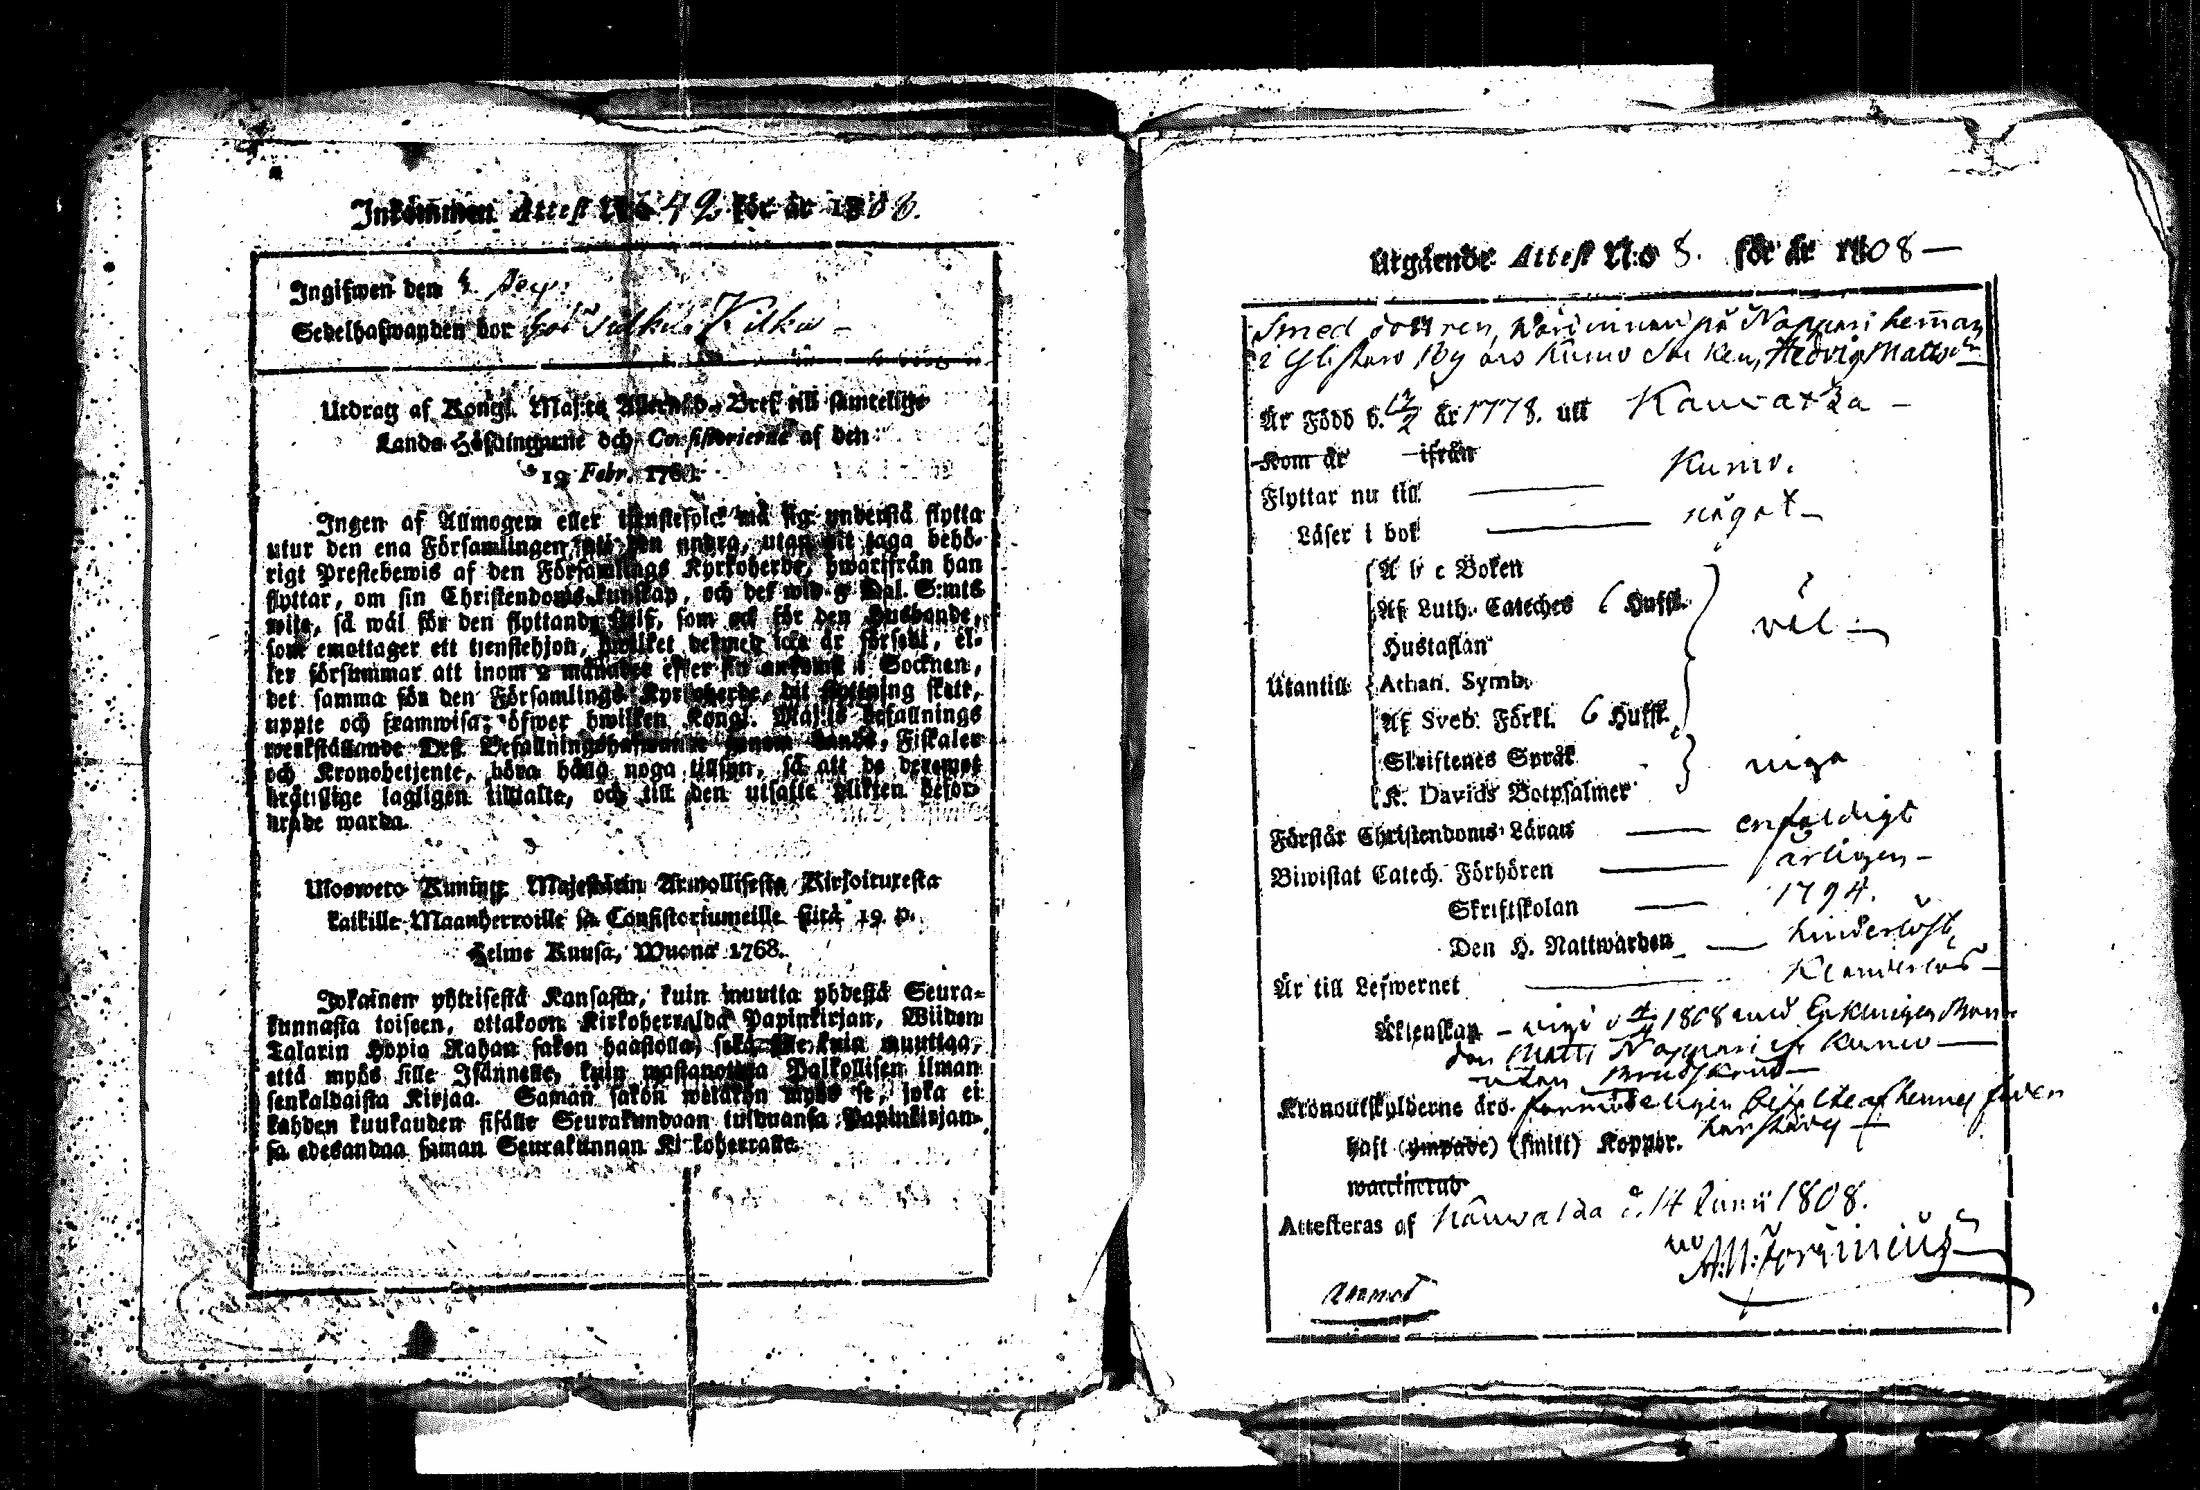 Inkommen Attest N:o 42 för år 1808.
Ingifwen den 4. Sep.
Sedelhafwanden bor
Utdrag af Kongl. Maj:ts Allernåd. Bref till samtelige
Lands-Höfdingarne och Consistorierne af den
19 Febr. 1768.
Ingen af Allmogen eller tienstefolck må sig understå flytta
utur den ena Församlingen till den andra, utan att taga behö-
rigt Prestebewis af den Församlings Kyrkoherde, hwarifrån han
flyttar, om sin Christendoms kunskap, och det wid 5 Dal. S:mts
wite, så wäl för den flyttande sielf, som ock för den Husbonde,
som emottager ett tienstehjon, hwilket dermed icke är försedt, el-
ler försummar att inom 2 månader efter sin ankomst i Socknen,
det samma för den Församlings Kyrkoherde, dit flyttning skett,
uppte och framwisa; öfwer hwilken Kongl. Maj:ts befallnings
werkställande Dess Befallningshafwande genom Lands-Fiskaler
och Kronobetjente, böra hålla noga tillsyn, så att de deremot
brätslige lagligen tilltalte, och till den utsatte plikten befor-
drade warda.
Ulosweto Kuning. Majestätin Armollisesta Kirjoituxesta
kaikille Maanherroille ja Consistoriumeille siitä 19. p.
Helme Kuusa, Wuona 1768.
Jokainen yhteisestä Kansasta, kuin muutta yhdestä Seura-
kunnasta toiseen, ottakoon Kirkoherralda Papinkirjan, Wiiden
Talarin Hopia Rahan sakon haastolla, sekä sille kuin muuttaa,
että myös sille Isännelle, kuin wastanottaa Palkollisen ilman
senkaldaista Kirjaa. Saman sakon wetäkön myös se, joka ei
kahden kuukauden sisälle Seurakundaan tulduansa Papinkirjan-
sa edesandaa saman Seurakunnan Kirkoherralle.
Utgående Attest N:o 8. för år 1808
Smed dottren, på Nappari heman
i By Kumo Socken, Hedvig Matts dr
Är Född d. 12/2 år 1778. uti Kauvatza
Kom år ifrån
Flyttar nu till Kumo.
Läser i bok något
A b c Boken
Af Luth. Cateches 6 Hufst.
Hustaflan
väl
Utantill Athan. Symb.
Af Sveb. Förkl. 6 Hufst.
Skriftenes Språk
K. Davids Botpsalmer
niga
Förstår Christendoms Läran enfaldigt
Biwistat Catech. Förhören årligen
Skriftskolan 1794.
Den H. Nattwarden hinderlöst
Är till Lefwernet Klanderlös
Äktenskap vigd d 1808 med Enklingen Bon-
den Matts Nappari ifr Kumo
utan Brudskrud
Kronoutskylderne äro förmodeligen betalte af hennes förra
husbönder
haft (ympade) (smitt) Koppor.
waccinerad
Attesteras af Kauwatsa d. 14 Junii 1808.